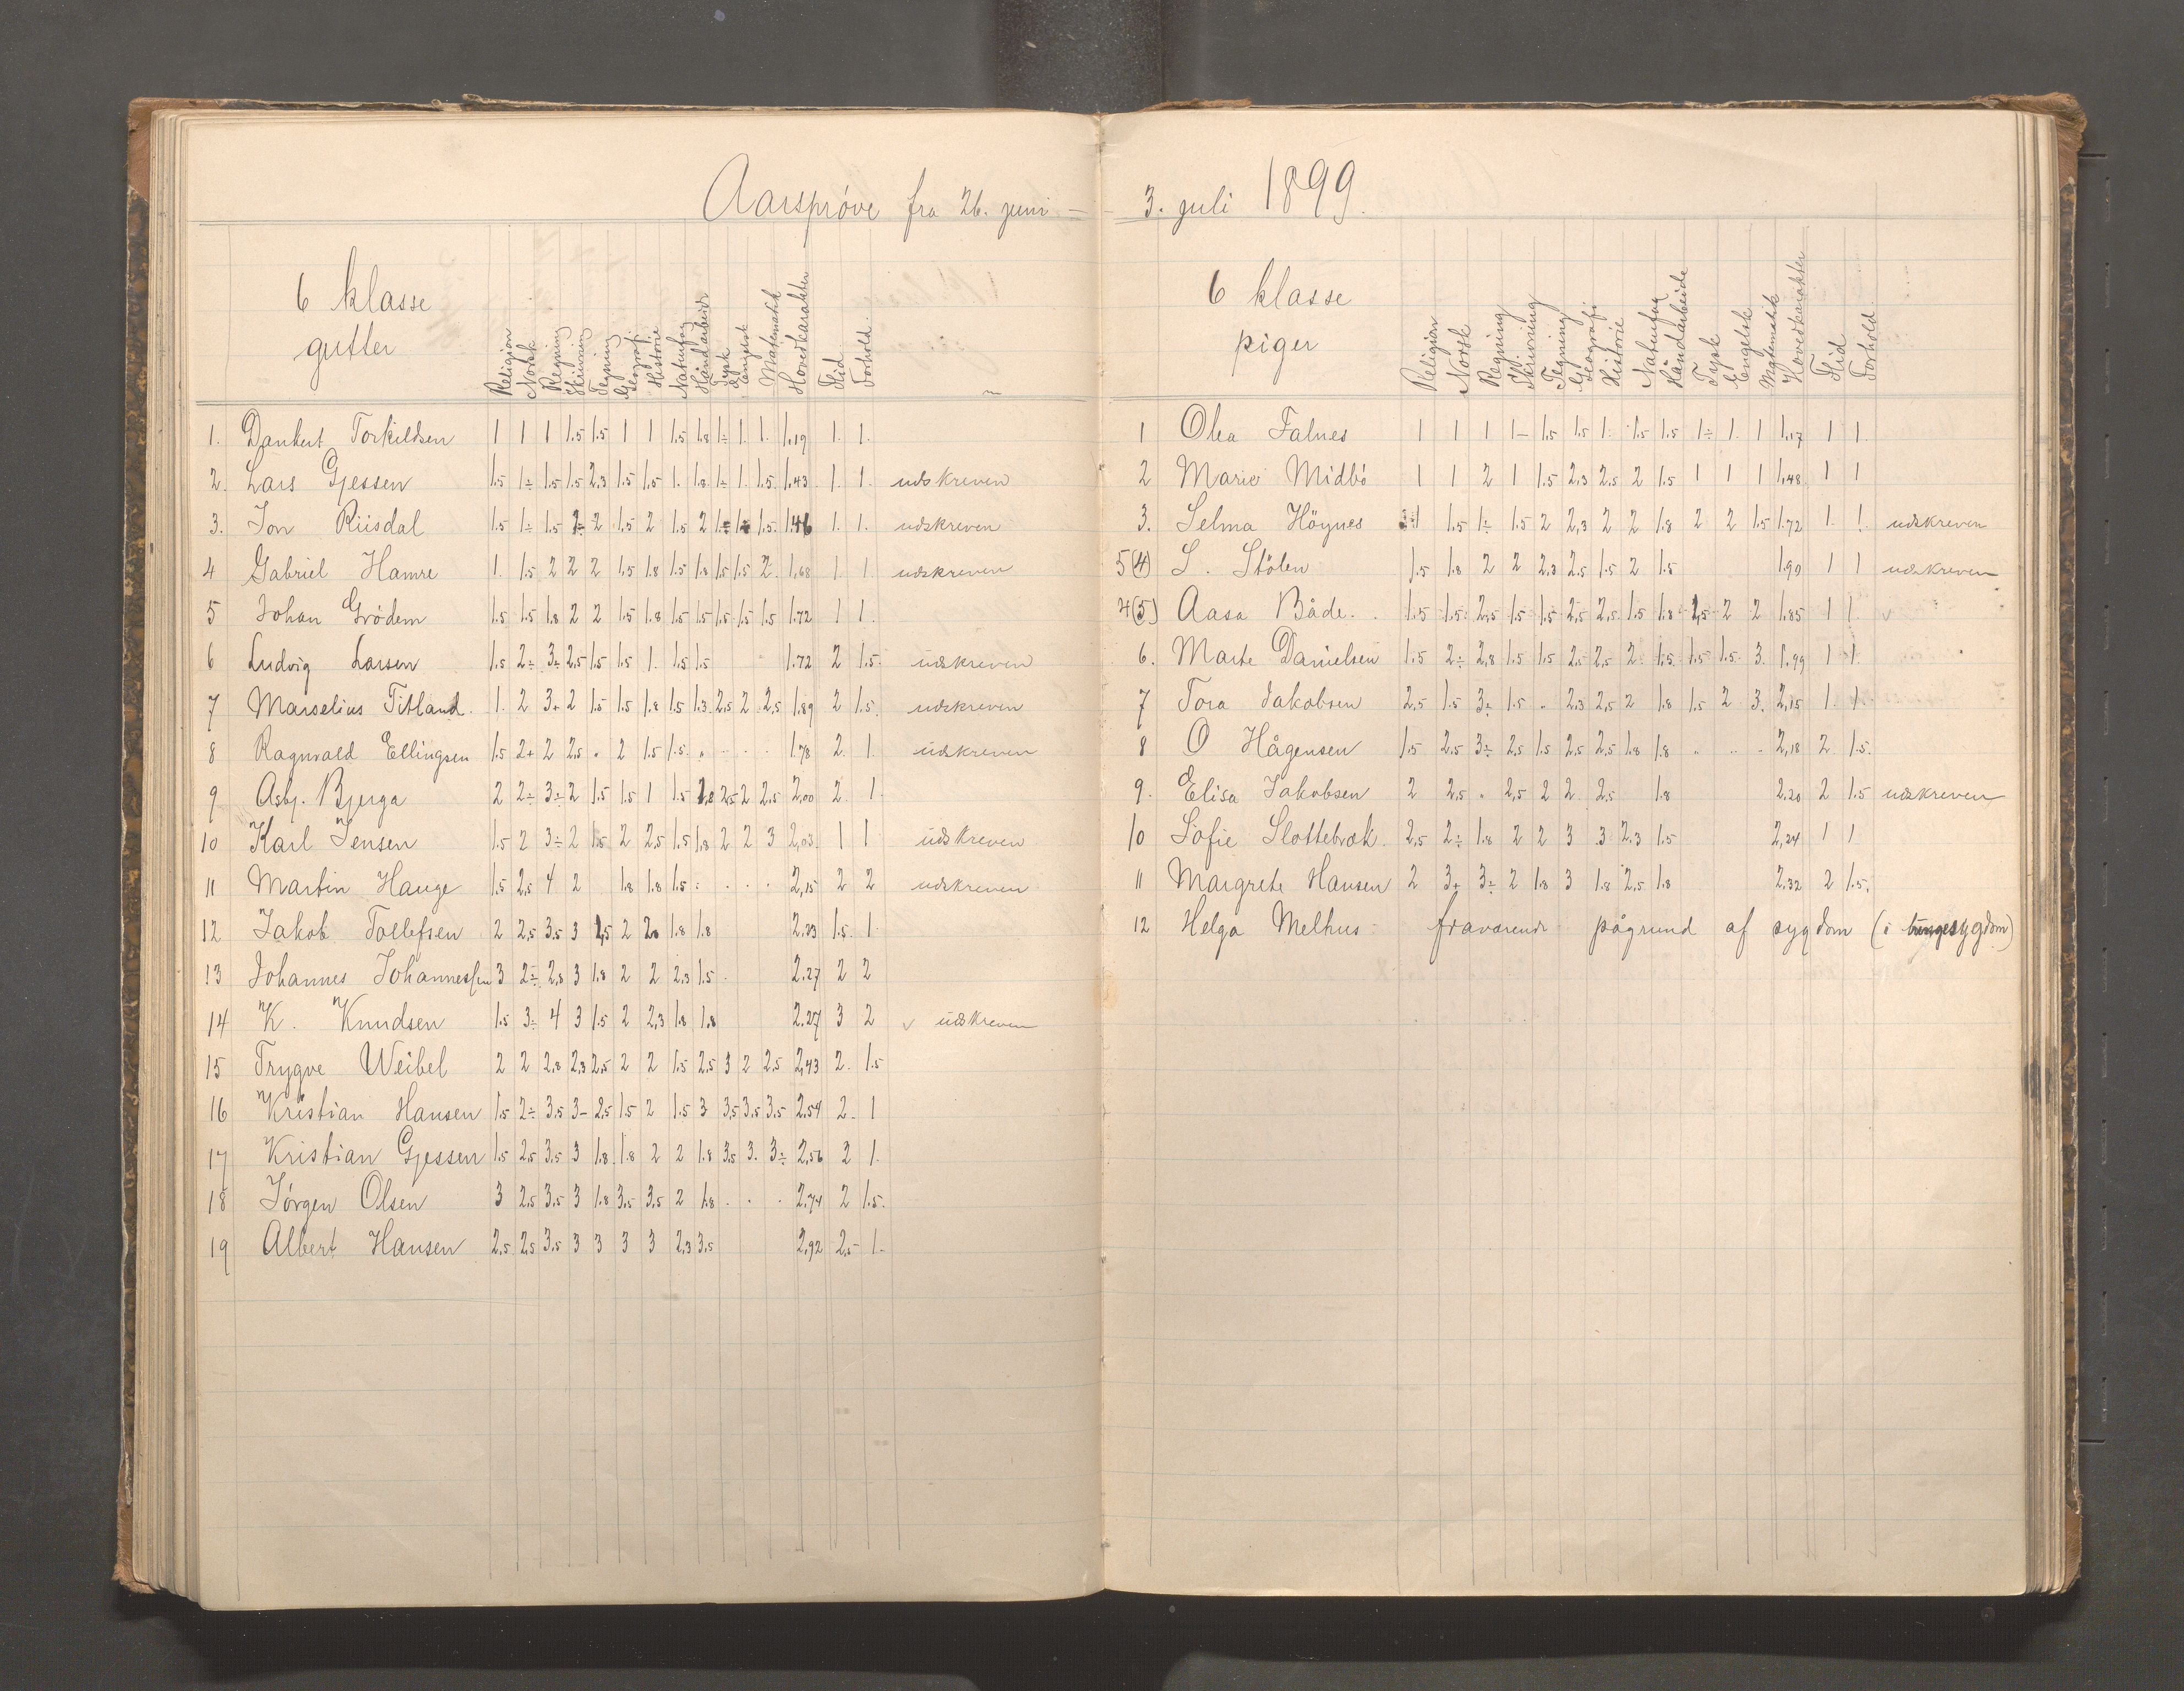 Aarsprøve fra 26. juni –
6 klasse
gutter
Religion Norsk Regning Skrivning Tegning Geografi Historie Naturfag Håndarbeide Tysk Engelsk Matematik Hovedkarakter Flid Forhold.
1. Dankert Torkildsen 1 1 1 1.5 1.5 1 1 1.5 1.8 1÷ 1. 1. 1.19 1. 1.
2. Lars Gjessen 1.5 1÷ 1.5 1.5 2,3 1.5 1.5 1. 1.8 1÷ 1. 1.5 1.43 1. 1. udskreven
3. Jon Riisdal 1.5 1÷ 1.5 2÷ 2 1.5 2 1.5 2 1÷ 1÷ 1.5 1.46 1. 1. udskreven
4 Gabriel Hamre 1. 1.5 2 2 2 1.5 1.8 1.5 1.8 1.5 1.5 2. 1,68 1. 1. udskreven
5 Johan Grødem 1.5 1.5 1.8 2 2 1.5 1.8 1.5 1.5 1.5 1.5 1.5 1.72 1 1.
6 Ludvig Larsen 1.5 2÷ 3÷ 2,5 1.5 1.5 1. 1.5 1.5 1.72 2 1.5. udskreven
7 Marselius Titland 1. 2 3+ 2 1.5 1.5 1.8 1.5 1.3 2,5 2 2,5 1.89 2 1.5. udskreven
8 Ragnvald Ellingsen 1.5 2+ 2 2,5 „ 2 1.5 1.5. „ . . . 1.78 2. 1. udskreven
9 Asbj. Bjerga 2 2÷ 3÷ 2 1.5 1.5 1 1.5 1.8 2,5 2 2,5 2,00 2. 1.
10 Karl Jensen 1.5 2 3÷ 2 1.5 2 2,5 1.5 1.8 2 2 3 2,03. 1 1 udskreven
11 Martin Hauge 1.5 2,5 4 2 1.8 1.8 1.5 . . . . 2,15 2 2 udskreven
12 Jakob Tollefsen 2 2,5 3,5 3 1,5 2 2,8 1.8 1.8 2.23 1.5. 1.
13 Johannes Johannessen 3 2÷ 2,8 3 1.8 2 2 2,3 1.5 . 2.27 2 2
14 K. Knudsen 1.5 3÷ 4 3 1.5 2 2,3 1.8 1.8 2.27 3 2 v udskreven
15 Trygve Weibel 2 2 2,8 2,3 2,5 2 2 1.5 2,5 3 2 2,5 2,43 2. 1.5
16 Kristian Hansen 1.5 2÷ 3,5 3– 2,5 1.5 2 1.5 3 3,5 3,5 3,5 2,54 2. 1
17 Kristian Gjessen 1.5 2,5 3,5 3 1.8 1.8 2 2 1.8 3,5 3. 3÷ 2,56 2 1.
18 Jørgen Olsen 3 2,5 3,5 3 1.8 3,5 3,5 2 1.8 . . . 2,74 2 1.5.
19 Albert Hansen 2,5 2,5 3,5 3 3 3 3 2,3 3,5 2,92 2,5 1.
3. juli 1899.
6 klasse
piger
Religion Norsk Regning Skrivning Tegning Geografi Historie Naturfag Håndarbeide Tysk Engelsk Matematik Hovedkarakter Flid Forhold
1 Olea Falnes 1 1 1 1– 1.5 1.5 1. 1.5 1.5 1÷ 1. 1 1.17 1 1
2 Marie Midbö 1 1 2 1 1.5 2,3 2,5 2 1.5 1 1 1 1,48 1 1
3. Selma Höynes 1 1.5 1÷ 1.5 2 2,3 2 2 1.8 2 2 1.5 1.72 1. 1. udskreven
5(4) S. Stölen 1.5 1.8 2 2 2,3 2,5 1.5 2 1.5 1.90 1 1 udskreven
4(5) Aasa Både. 1.5 1.5 2,5 1.5 1.5 2,5 2,5 1.5 1.8 1,5 2 2 1.85 1 1. v
6. Marte Danielsen 1.5 2÷ 2,8 1.5 1.5 2,5 2,5 2 1.5 1.5 1.5 3. 1.99 1 1.
7 Tora Jakobsen 2,5 1.5 3÷ 1.5 „ 2,3 2,5 2 1.8 1.5 2 3. 2,15 1. 1.
8 O Hågensen 1.5 2,5 3÷ 2,5 1.5 2,5 2,5 1.8 1.8 „ „ . 2,18 2. 1.5.
9. Elisa Jakobsen 2 2,5 „ 2,5 2 2 2,5 1.8 2.20 2 1.5 udskreven
10 Sofie Slottebrok 2,5 2÷ 1.8 2 2 3 3 2,3 1.5 2,24 1 1
11 Margrete Hansen 2 3+ 3÷ 2 1.8 3 1.8 2,5 1.8 2,32 2 1.5.
12 Helga Melhus fraværende pågrund af sygdom (i sygdom)